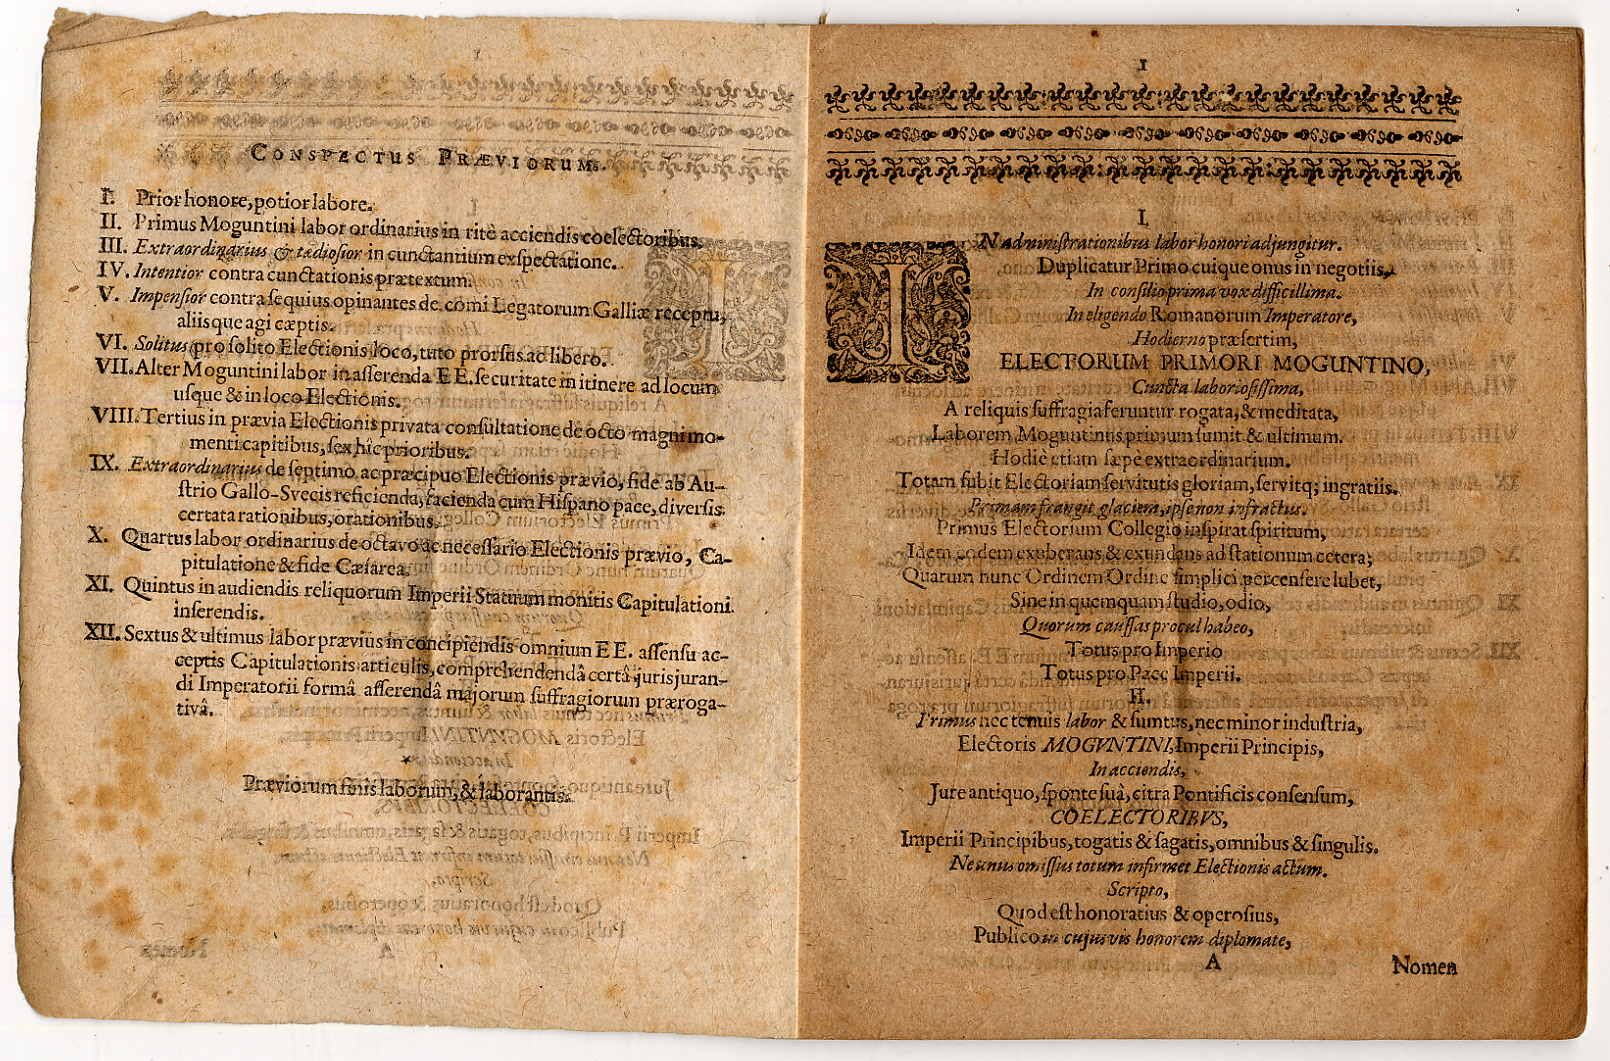 CONSPECTUS PRÆVIORUM.
I. Prior honore, potior labore.
II. Primus Moguntini labor ordinarius in ritè acciendis coelectoribus.
III. Extraordinarius & tædiosior in cunctantium exspectatione.
IV. Intentior contra cunctationis prætextum.
V. Impensior contra sequius opinantes de comi Legatorum Galliæ receptu,
aliisque agi cæptis.
VI. Solitus pro solito Electionis loco, tuto prorsus ac libero.
VII. Alter Moguntini labor in asserenda EE. securitate in itinere ad locum
usque & in loco Electionis.
VIII. Tertius in prævia Electionis privata consultatione de octo magni mo-
menti capitibus, sex hîc prioribus.
IX. Extraordinarius de septimo ac præcipuo Electionis prævio, fide ab Au-
strio Gallo-Svecis reficienda, facienda cum Hispano pace, diversis
certata rationibus, orationibus.
X. Quartus labor ordinarius de octavo ac necessario Electionis prævio, Ca-
pitulatione & fide Cæsarea.
XI. Quintus in audiendis reliquorum Imperii Statuum monitis Capitulationi
inserendis.
XII. Sextus & ultimus labor prævius in concipiendis omnium EE. assensu ac-
ceptis Capitulationis articulis, comprehendendâ certâ jurisjuran-
di Imperatorii formâ asserendâ majorum suffragiorum præroga-
tivâ.
*
Præviorum finis laborum, & laborantis.
1
I.
IN administrationibus labor honori adjungitur.
Duplicatur Primo cuique onus in negotiis,
In consilio prima vox difficillima.
In eligendo Romanorum Imperatore,
Hodierno præsertim,
ELECTORUM PRIMORI MOGUNTINO,
Cuncta laboriosissima,
A reliquis suffragia feruntur rogata, & meditata,
Laborem Moguntinus primum sumit & ultimum.
Hodiè etiam sæpè extraordinarium.
Totam subit Electoriam servitutis gloriam, servitq; ingratiis.
Primam frangit glaciem, ipse non infractus.
Primus Electorium Collegio inspirat spiritum,
Idem eodem exuberans & exundans ad stationum cetera;
Quarum nunc Ordinem Ordine simplici percensere lubet,
Sine in quemquam studio, odio,
Quorum caussas procul habeo,
Totus pro Imperio
Totus pro Pace Imperii.
II.
Primus nec tenuis labor & sumtus, nec minor industria,
Electoris MOGVNTINI, Imperii Principis,
In acciendis,
Jure antiquo, sponte suâ, citra Pontificis consensum,
COELECTORIBVS,
Imperii Principibus, togatis & sagatis, omnibus & singulis.
Ne unus omissus totum infirmet Electionis actum.
Scripto,
Quod est honoratius & operosius,
Publico in cujusvis honorem diplomate,
A Nomen